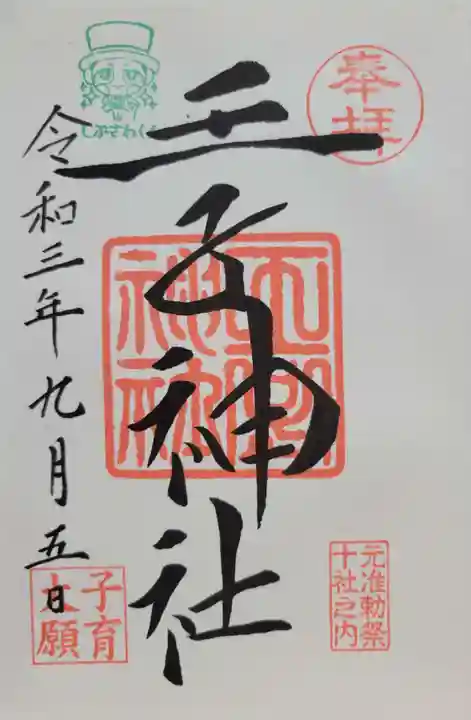 奉拝
王子神社
王子神社
元准勅祭
十社之内
しぶさわくん
令和三年九月五日
子育
大願